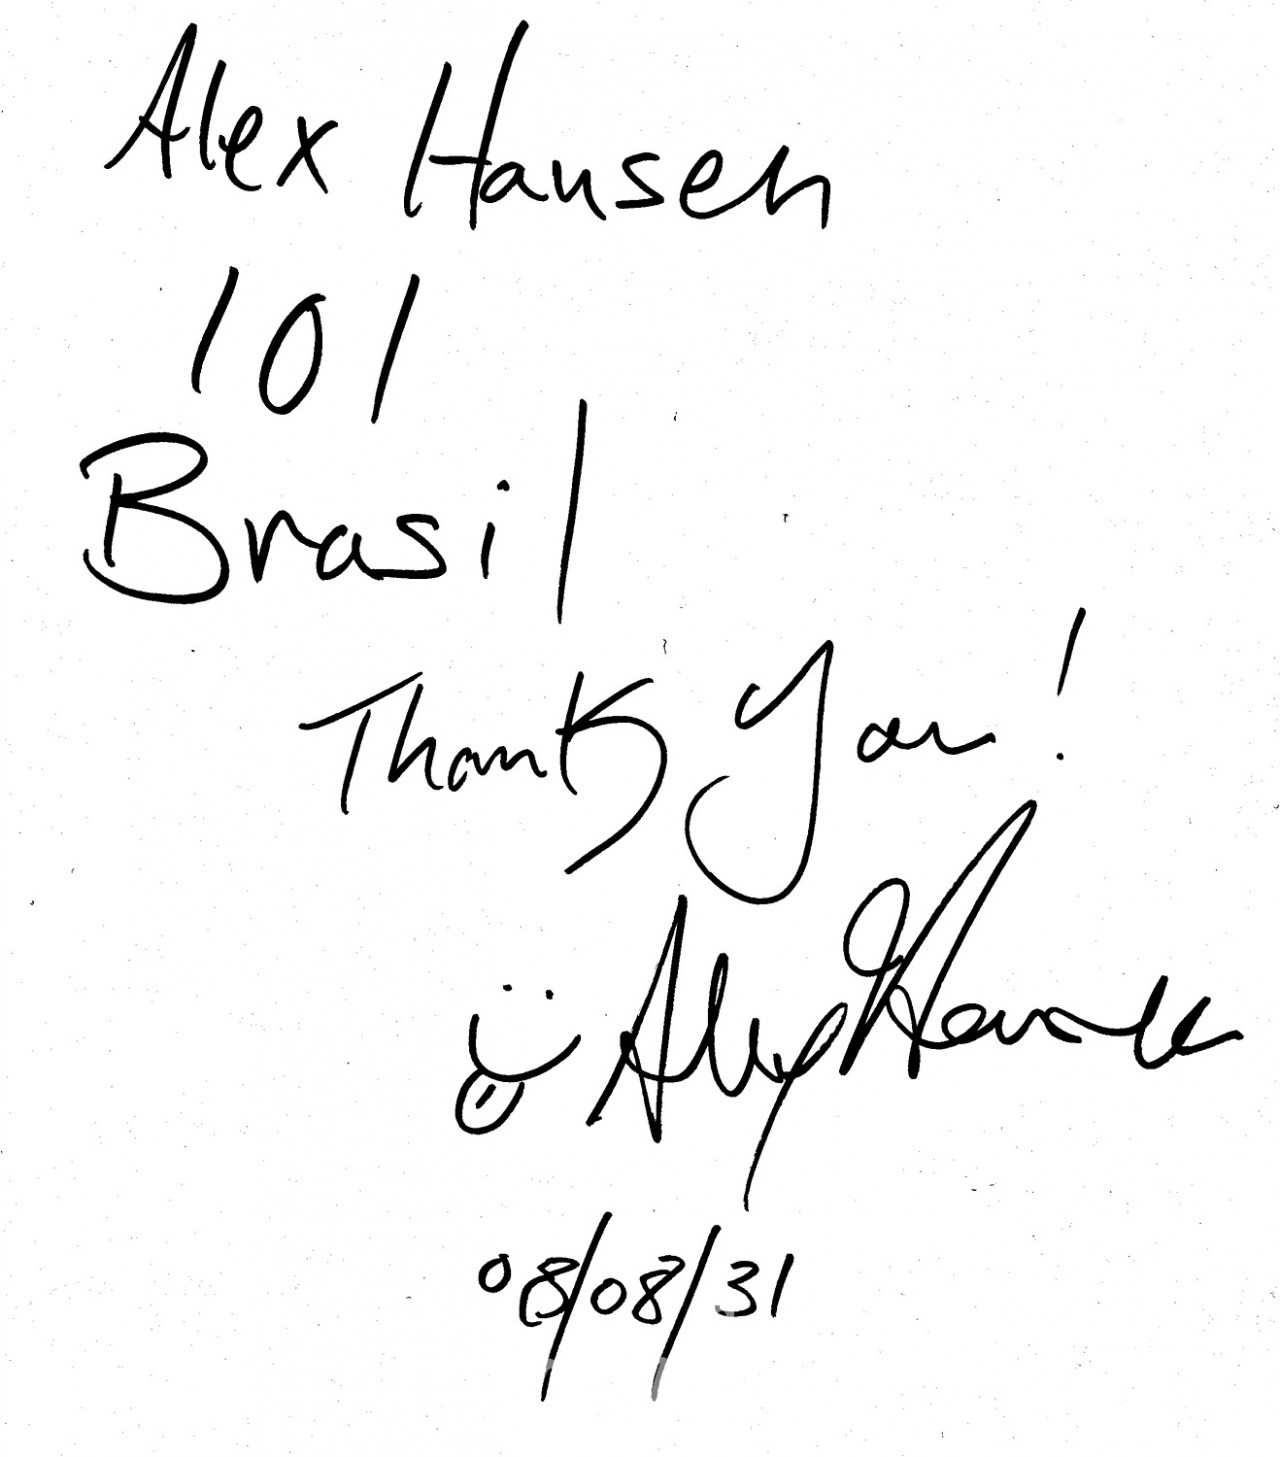 Alex Hansen
101
Brasil
Thank you!
Alex Hansen
08/08/31